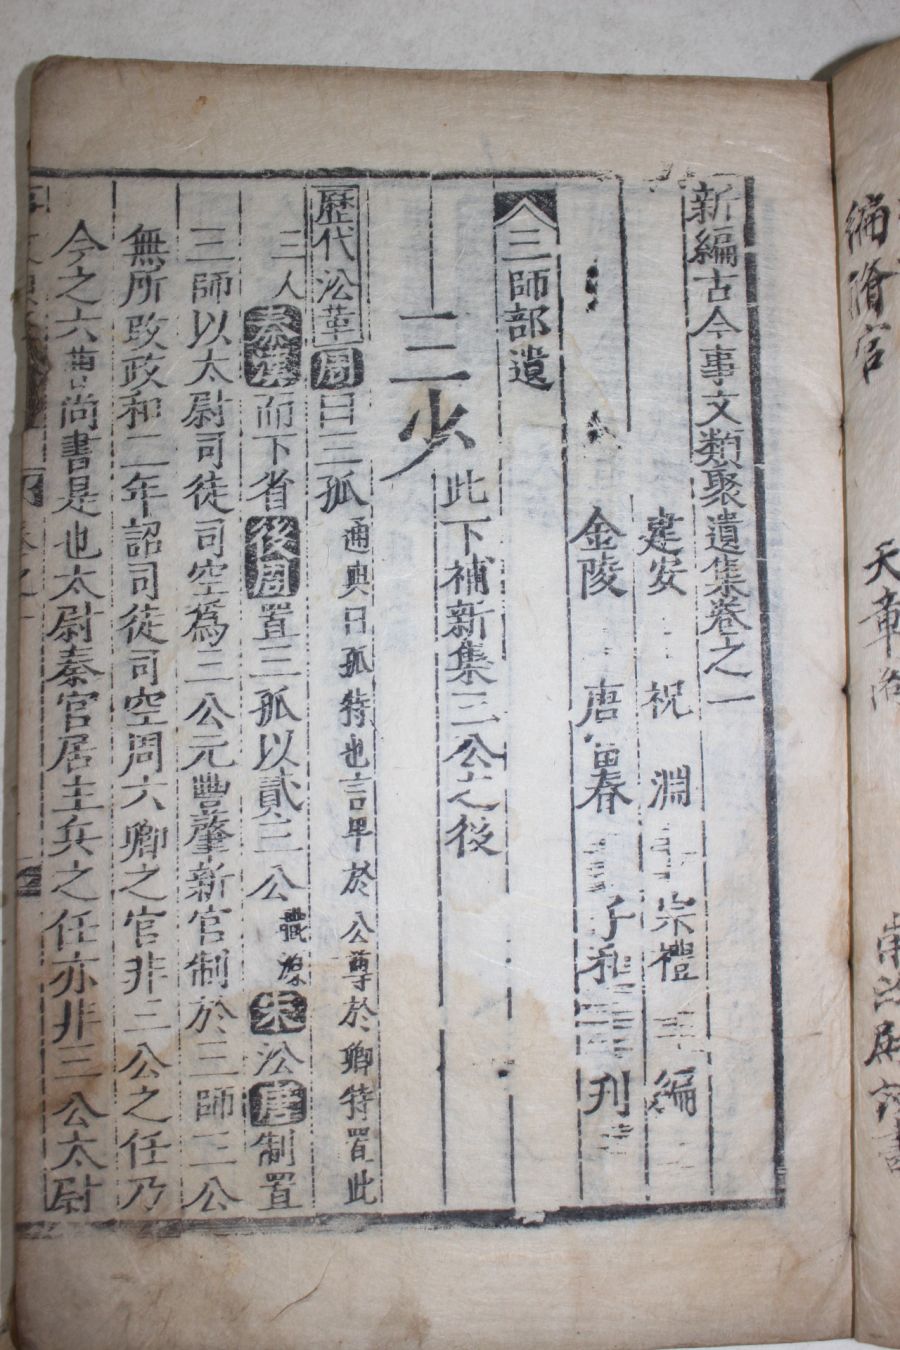 新編古今事文類聚遺集卷之一
建安 祝 淵 宗禮 編
金陵 唐富春 子和 刊
三師部遺
三少 此下補新集三公之後
歷代沿革 周曰三孤 通典曰孤特也言卑於公尊於卿特置此
三人 秦漢而下省 後周置三孤以貳三公 職源 宋沿唐制置
三師以太尉司徒司空爲三公元豐肇新官制於三師三公
無所改政和二年詔司徒司空周六卿之官非三公之任乃
今之六曹尚書是也太尉秦官居主兵之任亦非三公太尉
編脩官
天章